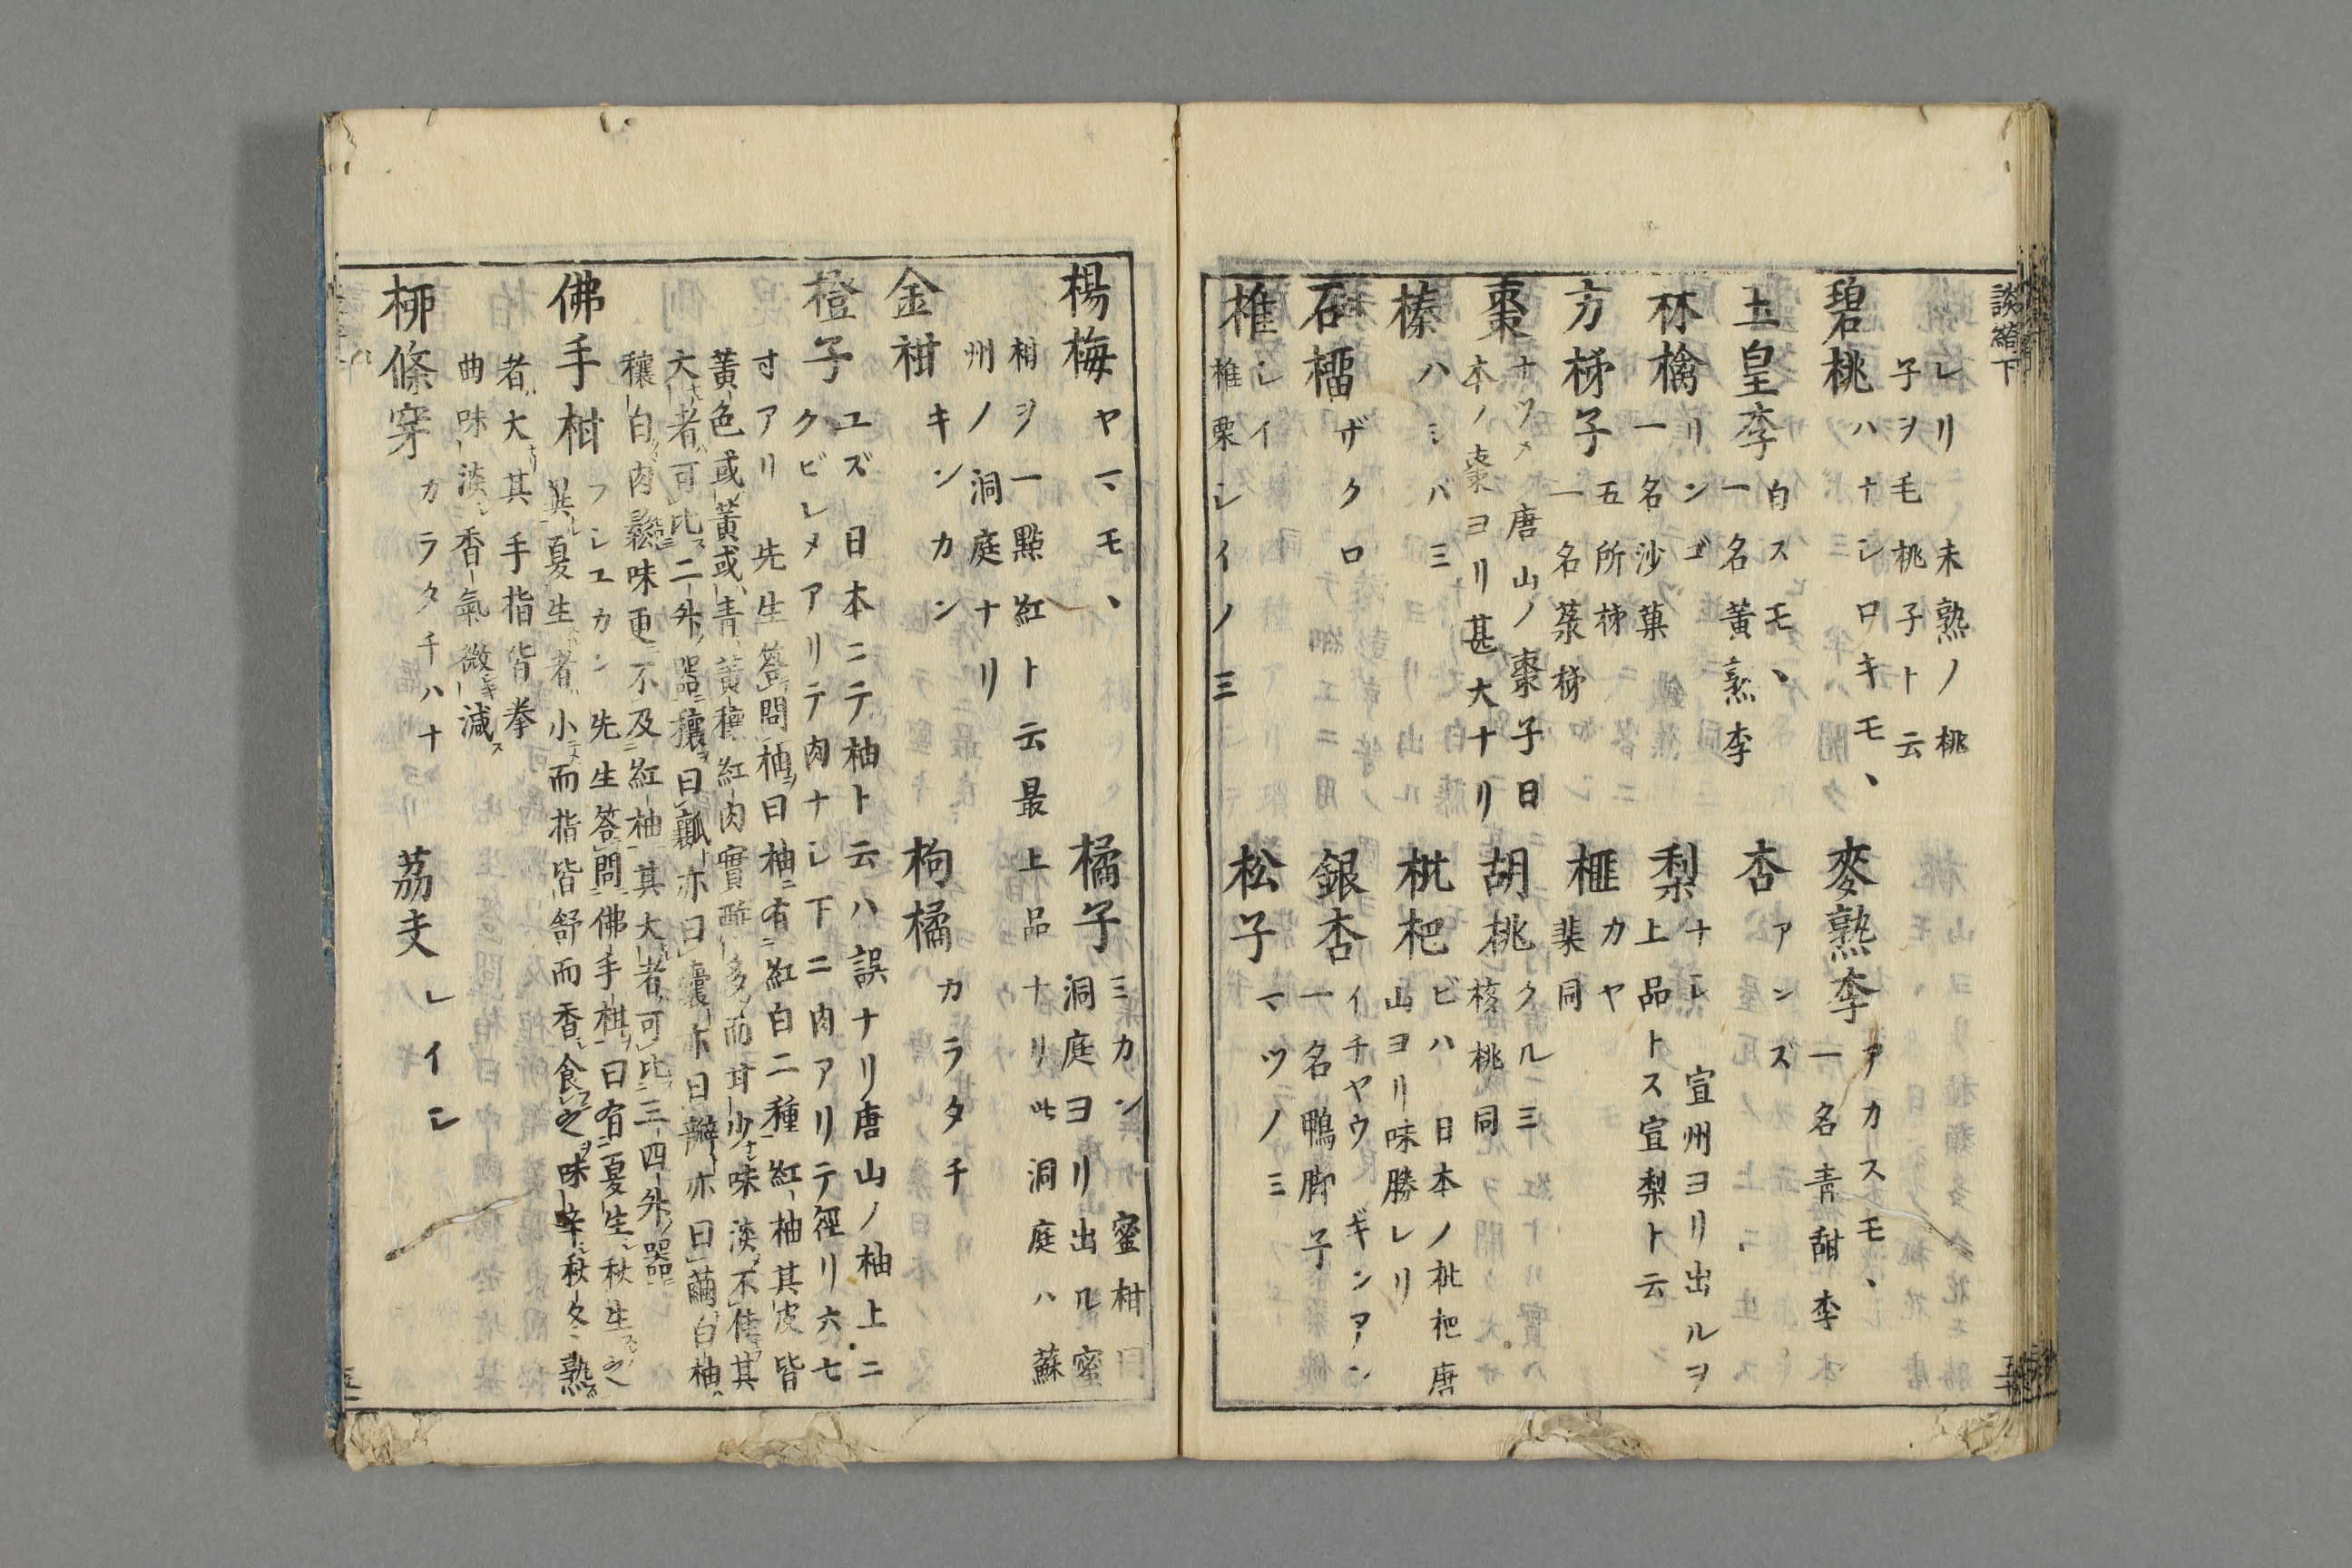 談綺下
レリ 未熟ノ桃
子ヲ毛桃子ト云
碧桃 ハナシロキモヽ
麥熟李 アカスモヽ
一名青甜李
玉皇李 白スモヽ
一名黄熟李
杏 アンズ
林檎 リンゴ
一名沙菓
梨 ナシ 宣州ヨリ出ルヲ
上品トス宣梨ト云
方柹子 五所柹
一名蒸柹
榧 カヤ
棐同
棗 ナツメ 唐山ノ棗子日
本ノ棗ヨリ甚大ナリ
胡桃 クルミ
核桃同
榛 ハシバミ
枇杷 ビハ 日本ノ枇杷唐
山ヨリ味勝レリ
石橊 ザクロ
銀杏 イチヤウ ギンアン
一名鴨脚子
椎 シイ
椎栗 シイノミ
松子 マツノミ
楊梅 ヤマモヽ
橘子 ミカン 蜜柑
洞庭ヨリ出ル蜜
柑ヲ一點紅ト云最上品ナリ此洞庭ハ蘇
州ノ洞庭ナリ
金柑 キンカン
枸橘 カラタチ
橙子 ユズ 日本ニテ柚ト云ハ誤ナリ唐山ノ柚上ニ
クビレメアリテ肉ナシ下ニ肉アリテ徑リ六七
寸アリ 先生答問柚曰柚有紅白二種紅柚其皮皆
黄色或黄或青黄穰紅肉實酢多而甘少味淡不佳其
大者可比二升器穰曰瓤亦曰囊亦曰瓣亦曰繭白柚
穰白肉鬆味更不及紅柚其大者可比三四升器
佛手柑 フシユカン 先生答問佛手柑曰有夏生秋生之
異夏生者小而指皆舒而香食之味辛秋冬熟
者大其手指皆拳
曲味淡香氣微減
柳條穿 カラタチハナ
茘支 レイシ